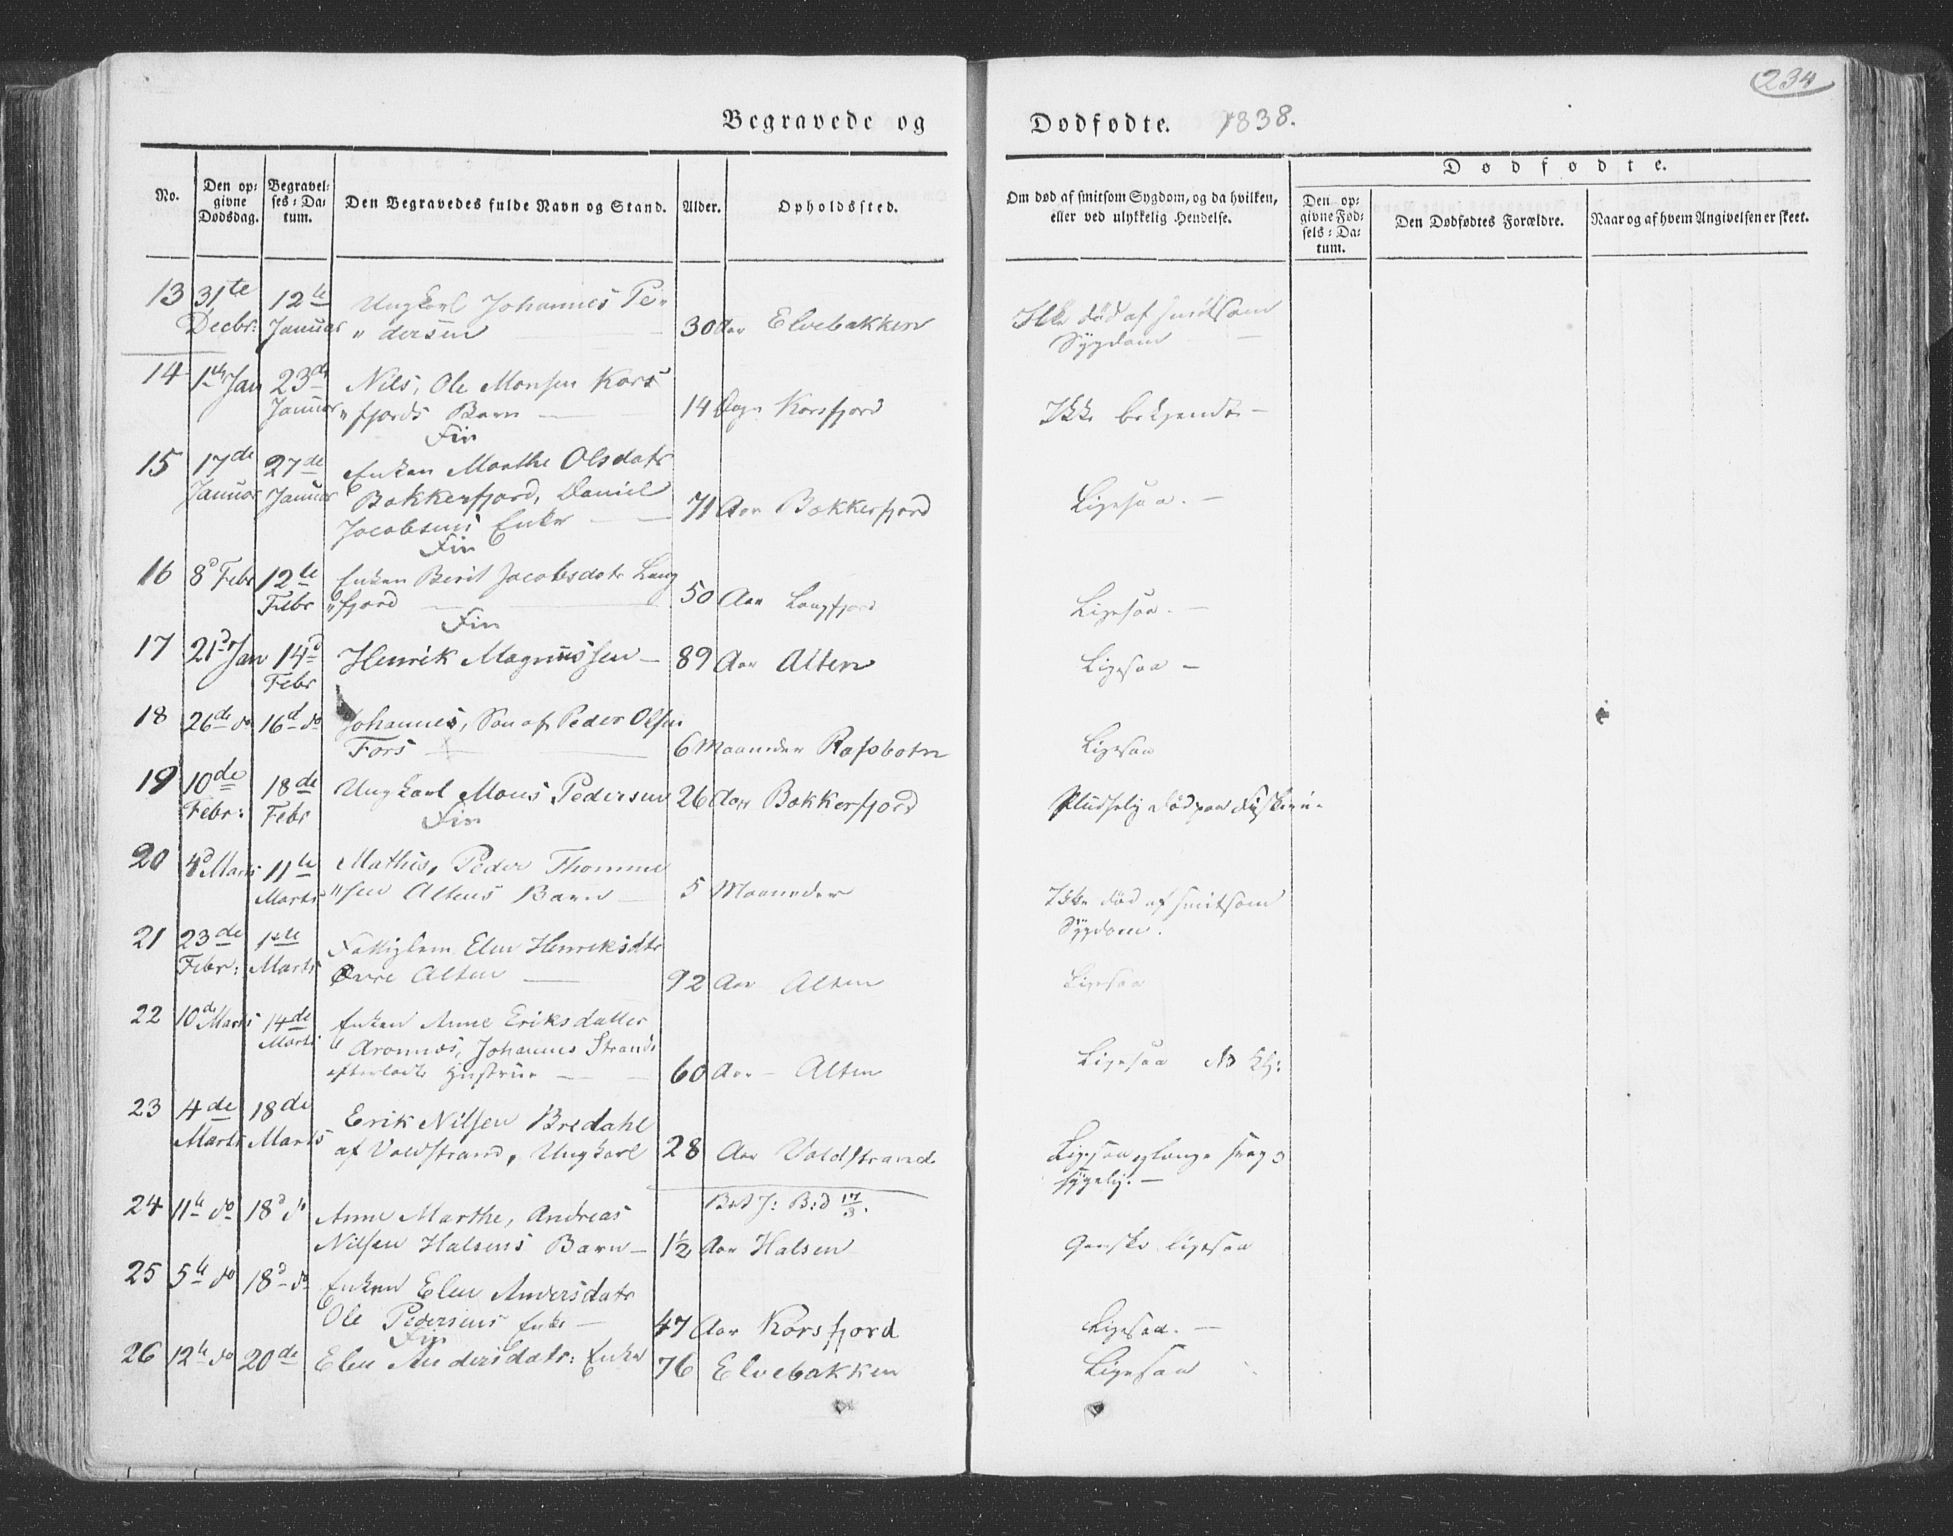 234
Begravede og Dødfødte. 1838.
No.
Den op-
givne
Dødsdag.
Begravel-
ses-Da-
tum.
Den Begravedes fulde Navn og Stand.
Alder.
Opholdssted.
Om død af smitsom Sygdom, og da hvilken,
eller ved ulykkelig Hendelse.
Dødfødte.
Den op-
givne Fød-
sels-Da-
tum.
Den Dødfødtes Forældre.
Naar og af hvem Angivelsen er skeet.
13 31te 12te Ungkarl Johannes Pe„
Decbr: Januar „dersen 30 Aar Elvebakken Ikke død af smitsom
Sygdom
14 1ste Jan 23de Nils, Ole Monsen Kors
Januar „fjords Barn 14 Dage Korsfjord Ikke bekjendt
Fin
15 17de 27de Enken Marthe Olsdatr
Januar Januar Bakkerfjord, Daniel
Jacobsens Enke 71 Aar Bakkerfjord Ligesaa.
Fin
16 8d Febr 12te Enken Berit Jacobsdatr Lang
Febr „fjord 50 Aar Langfjord Ligesaa.
Fin
17 21d Jan 14d Henrik Magnussen 89 Aar Alten Ligesaa
Febr
18 26de do 16d do Johannes, Søn af Peder Olsen
Fors 6 Maaneder Rafsbotn Ligesaa
19 10de 18de Ungkarl Mons Pedersen 26 Aar Bakkerfjord Pludselig død paa Fiskeri
Febr: Febr
Fin
20 4d Marts 11te Mathis, Peder Thomme
Marts „sen Altens Barn 5 Maaneder Ikke død af smitsom
Sygdom.
21 23de 1ste Fattiglem Elen Henriksdtr
Febr: Marts Øvre Alten 92 Aar Alten Ligesaa
22 10de Marts 14de Enken Anne Eriksdatter
Marts Aronnes, Johannes Strands
efterladte Hustrue 60 Aar Alten Ligesaa
23 4de 18de Erik Nilsen Bredahl
Marts Marts af Valdstrand, Ungkarl 28 Aar Valdstrand Ligesaa og længe svag og
sygelig.
24 11te do 18d do Anne Marthe, Andreas
Nilsen Halsens Barn 1½ Aar Halsen Ganske ligesaa
25 5te do 18d do Enken Elen Andersdatr
Ole Pedersens Enke 47 Aar Korsfjord Ligesaa.
Fin
26 12te do 20de Elen Andersdatr: Enke 76 Elvebakken Ligesaa